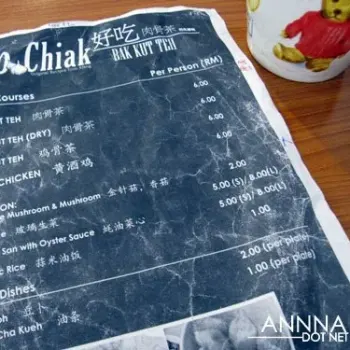 Chiak 好吃 肉骨茶
BAK KUT TEH
Per Person (RM)
Courses
TEH 肉骨茶 6.00
TEH (DRY) 肉骨茶 6.00
TEH 鸡骨茶 6.00
CHICKEN 黄酒鸡 6.00
ON:
Mushroom & Mushroom 金针菇, 香菇 2.00
玻璃生菜 5.00 (S) / 8.00(L)
San with Oyster Sauce 蚝油菜心 5.00 (S) / 8.00(L)
Rice 蒜米油饭 1.00
Dishes
豆卜 2.00 (per plate)
Cha Kueh 油条 1.00 (per plate)
ANNNA
DOT NET